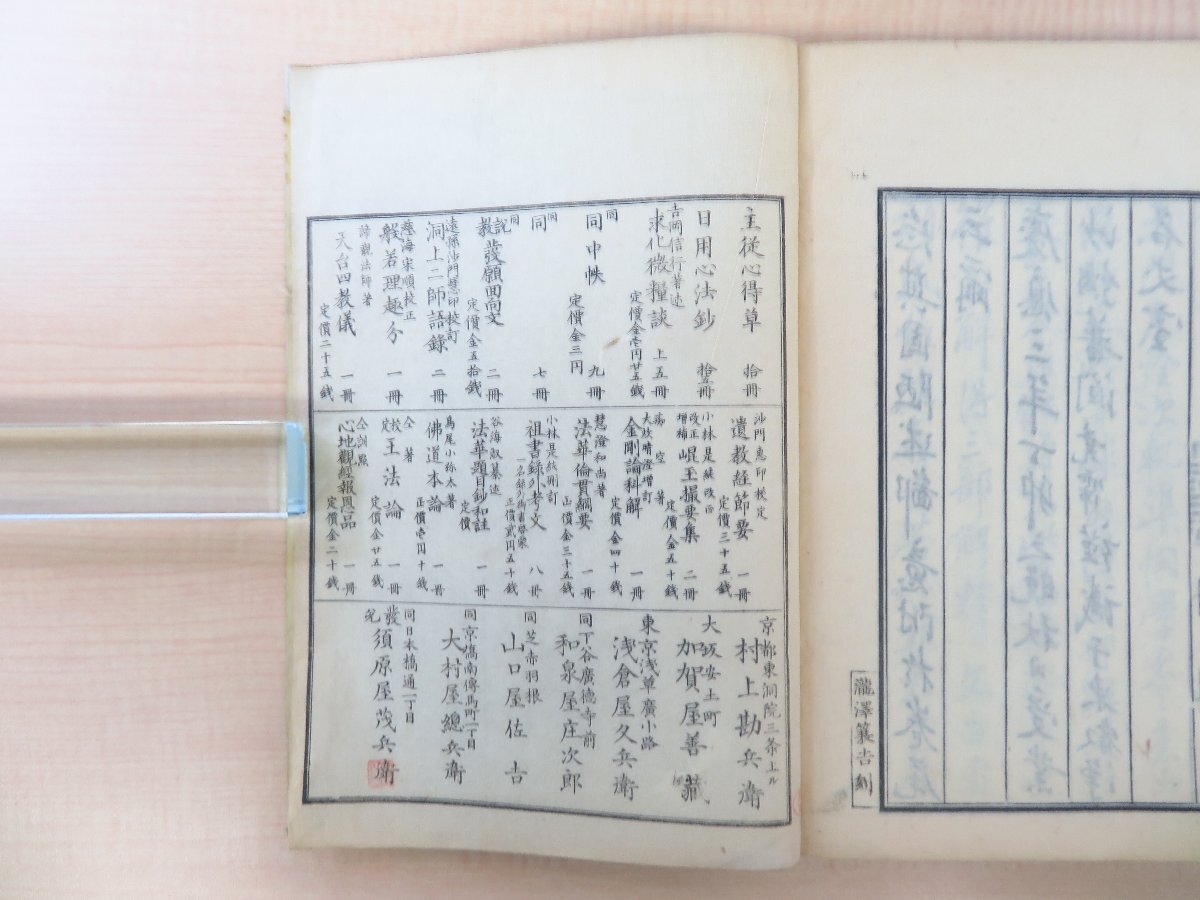 瀧澤簑吉刻
主從心得草 拾冊
日用心法鈔 拾五冊
吉岡信行著述
求化微糧談 上五冊
定價金壱円廿五錢
同 同中帙 九冊
定價金三円
同 同 七冊
同
説教 發願回向文 二冊
定價金五拾錢
遠孫沙門慧印校訂
洞上二師語錄 二冊
慈海宋順校正
般若理趣分 一冊
諦觀法師著
天台四教儀 一冊
定價二十五錢
沙門惠印校定
遺教経節要 一冊
定價三十五錢
小林是純改正
改正增補 崐玉撮要集 二冊
定價金五十錢
癡空著
大玖晴澄增訂
金剛論科解 一冊
定價金四十錢
慧澄和尚著
法華倫貫綱要 一冊
正價金三十五錢
小林是純刪訂
祖書録外考文 八冊
一名錄外御書啓蒙
正價貳円五十錢
谷海叙纂述
法華題目鈔和註 一冊
定價
鳥尾小弥太著
佛道本論 一冊
正價壱円十錢
仝著
校定 王法論 一冊
定價金廿五錢
仝訓點
心地觀經報恩品 一冊
定價金二十錢
京都東洞院三条上ル
村上勘兵衛
大坂安土町
加賀屋善藏
東京浅草廣小路
浅倉屋久兵衛
同下谷廣德寺前
和泉屋庄次郎
同芝赤羽根
山口屋佐吉
同京橋南傳馬町一丁目
大村屋總兵衛
同日本橋通一丁目
發兌 須原屋茂兵衛